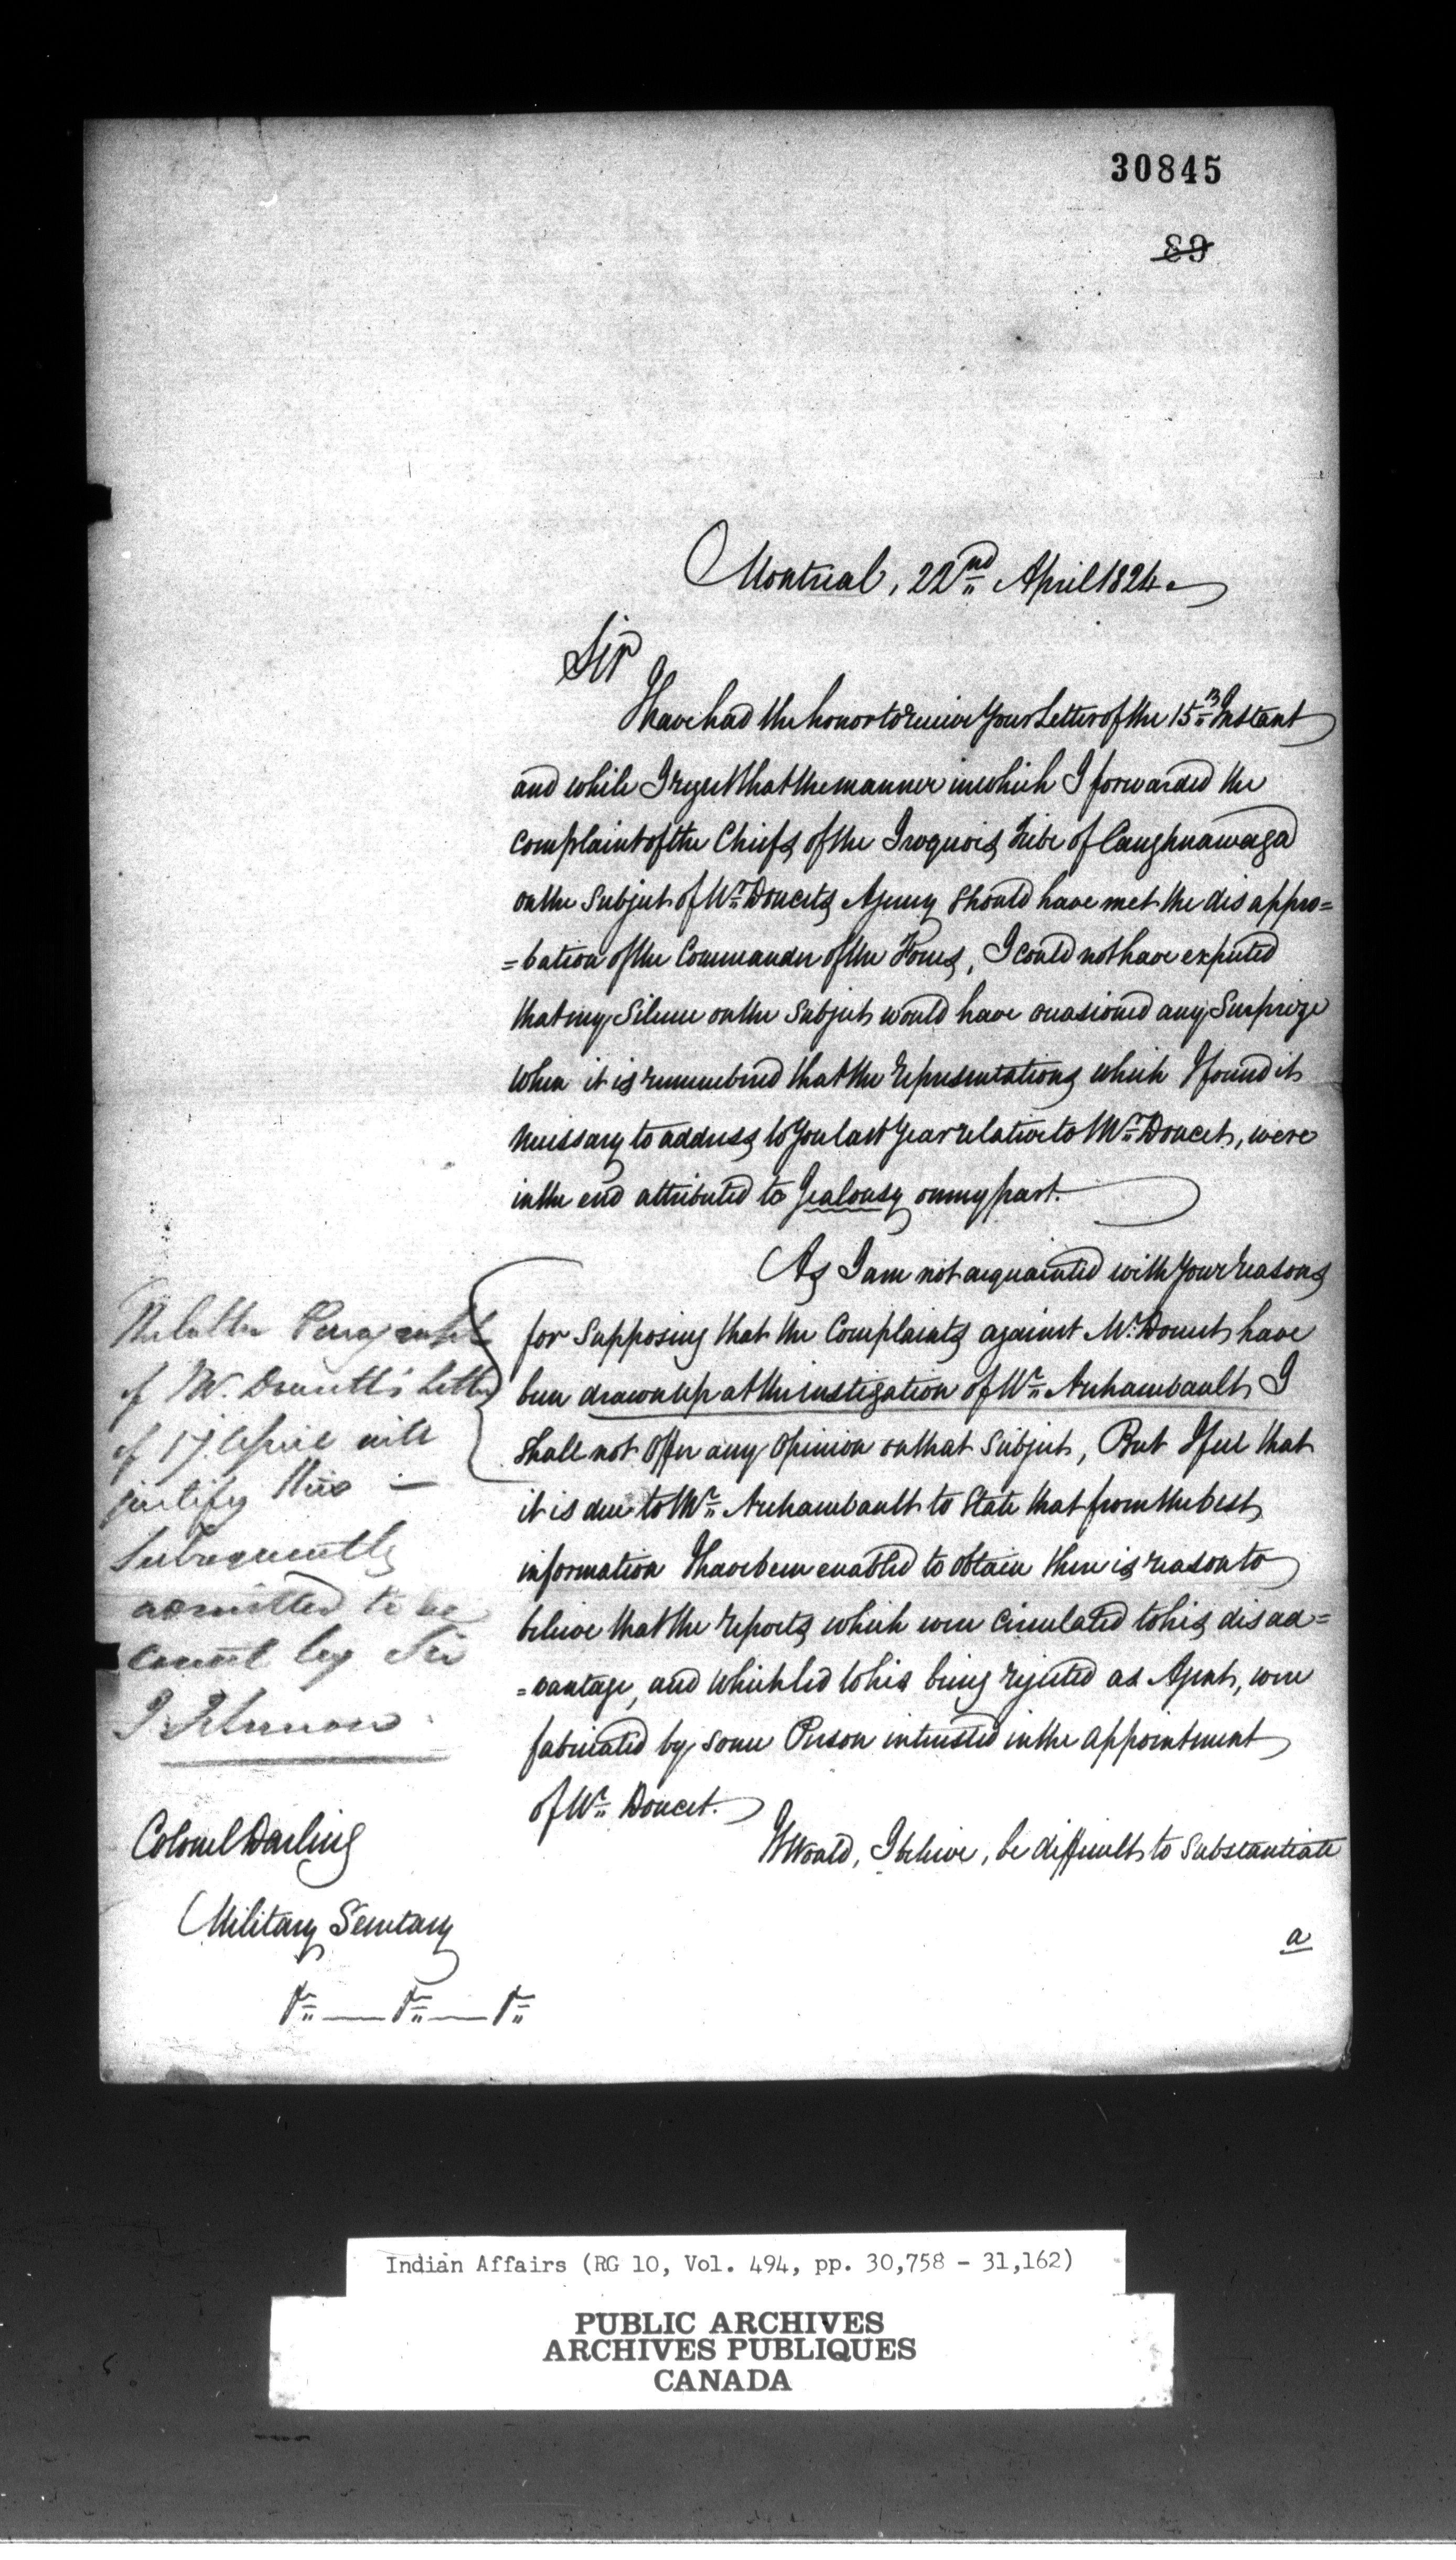 30845
89
Montreal, 22nd April 1824
Sir
I have had the honor to receive Your Letter of the 15th Instant
and while I regret that the manner in which I forwarded the
Complaint of the Chiefs of the Iroquois Tribe of Caughnawaga
on the Subject of Mr Doucets Agency should have met the disappro=
=bation of the Commander of the Forces, I could not have expected
that my Silence on the Subject would have occasioned any Surprize
when it is remembered that the representations which I found it
necessary to address to You last Year relative to Mr Doucet, were
in the end attributed to Jealousy on my part.
As I am not acquainted with Your reasons
for Supposing that the Complaints against Mr Doucet have
been drawn up at the instigation of Mr Archambault I
shall not Offer any Opinion on that Subject, But I feel that
it is due to Mr Archambault to State that from the best
information I have been enabled to obtain there is reason to
believe that the reports which were circulated to his disad=
=vantage, and which led to his being rejected as Agent, were
fabricated by some Person interested in the appointment
of Mr Doucet.
It Would, I believe, be difficult to Substantiate
a
The latter Paragraph
of Mr. Doucett's Letter
of 17 April will
justify this —
Subsequently
admitted to be
correct by Sir
J. Johnson
Colonel Darling
Military Secretary
&c — &c — &c
Indian Affairs (RG 10, Vol. 494, pp. 30,758 - 31,162)
PUBLIC ARCHIVES
ARCHIVES PUBLIQUES
CANADA